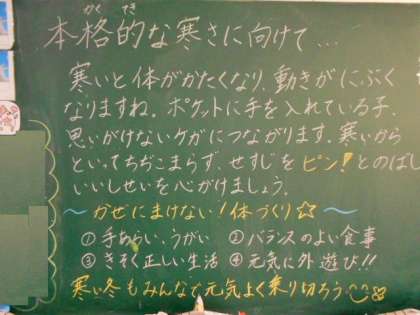 かく てき
本格的な寒さに向けて…
寒いと体がかたくなり、動きがにぶく
なりますね。ポケットに手を入れている子、
思いがけないケガにつながります。寒いから
といってちぢこまらず、せすじをピン!とのばし
いいしせいを心がけましょう。
～かぜにまけない!体づくり☆～
①手あらい、うがい ②バランスのよい食事
③きそく正しい生活 ④元気に外遊び!!
寒い冬もみんなで元気よく乗り切ろう